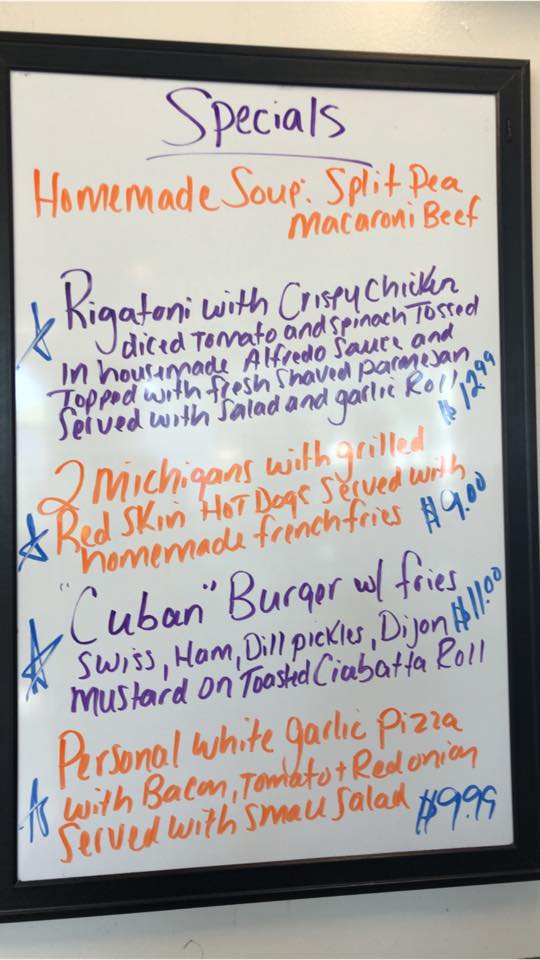 Specials
Homemade Soup: Split Pea
Macaroni Beef
Rigatoni with Crispy Chicken
diced Tomato and Spinach Tossed
In housemade Alfredo Sauce and
Topped with fresh Shaved parmesan
Served with Salad and garlic Roll $12.99
2 Michigans with grilled
Red Skin Hot Dogs Served with
homemade french fries $9.00
"Cuban" Burger w/ fries
Swiss, Ham, Dill pickles, Dijon $11.00
Mustard on Toasted Ciabatta Roll
Personal White garlic Pizza
with Bacon, Tomato + Red onion
Served with Small Salad $9.99